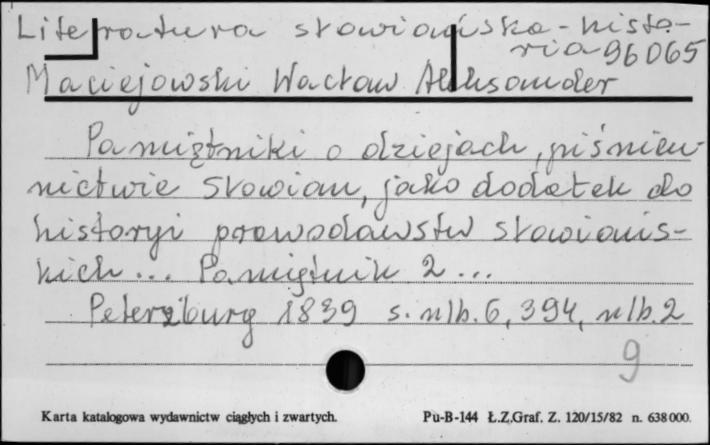 Literatura słowiańska - histo-
ria 96065
Maciejowski Wacław Aleksander
Pamiętniki o dziejach, piśmien-
nictwie Słowian, jako dodatek do
historyi prawodawstw słowiańs-
kich... Pamiętnik 2...
Petersburg 1839 s. nlb. 6, 394, nlb. 2
9
Karta katalogowa wydawnictw ciągłych i zwartych. Pu-B-144 Ł.Z.Graf. Z. 120/15/82 n. 638000.